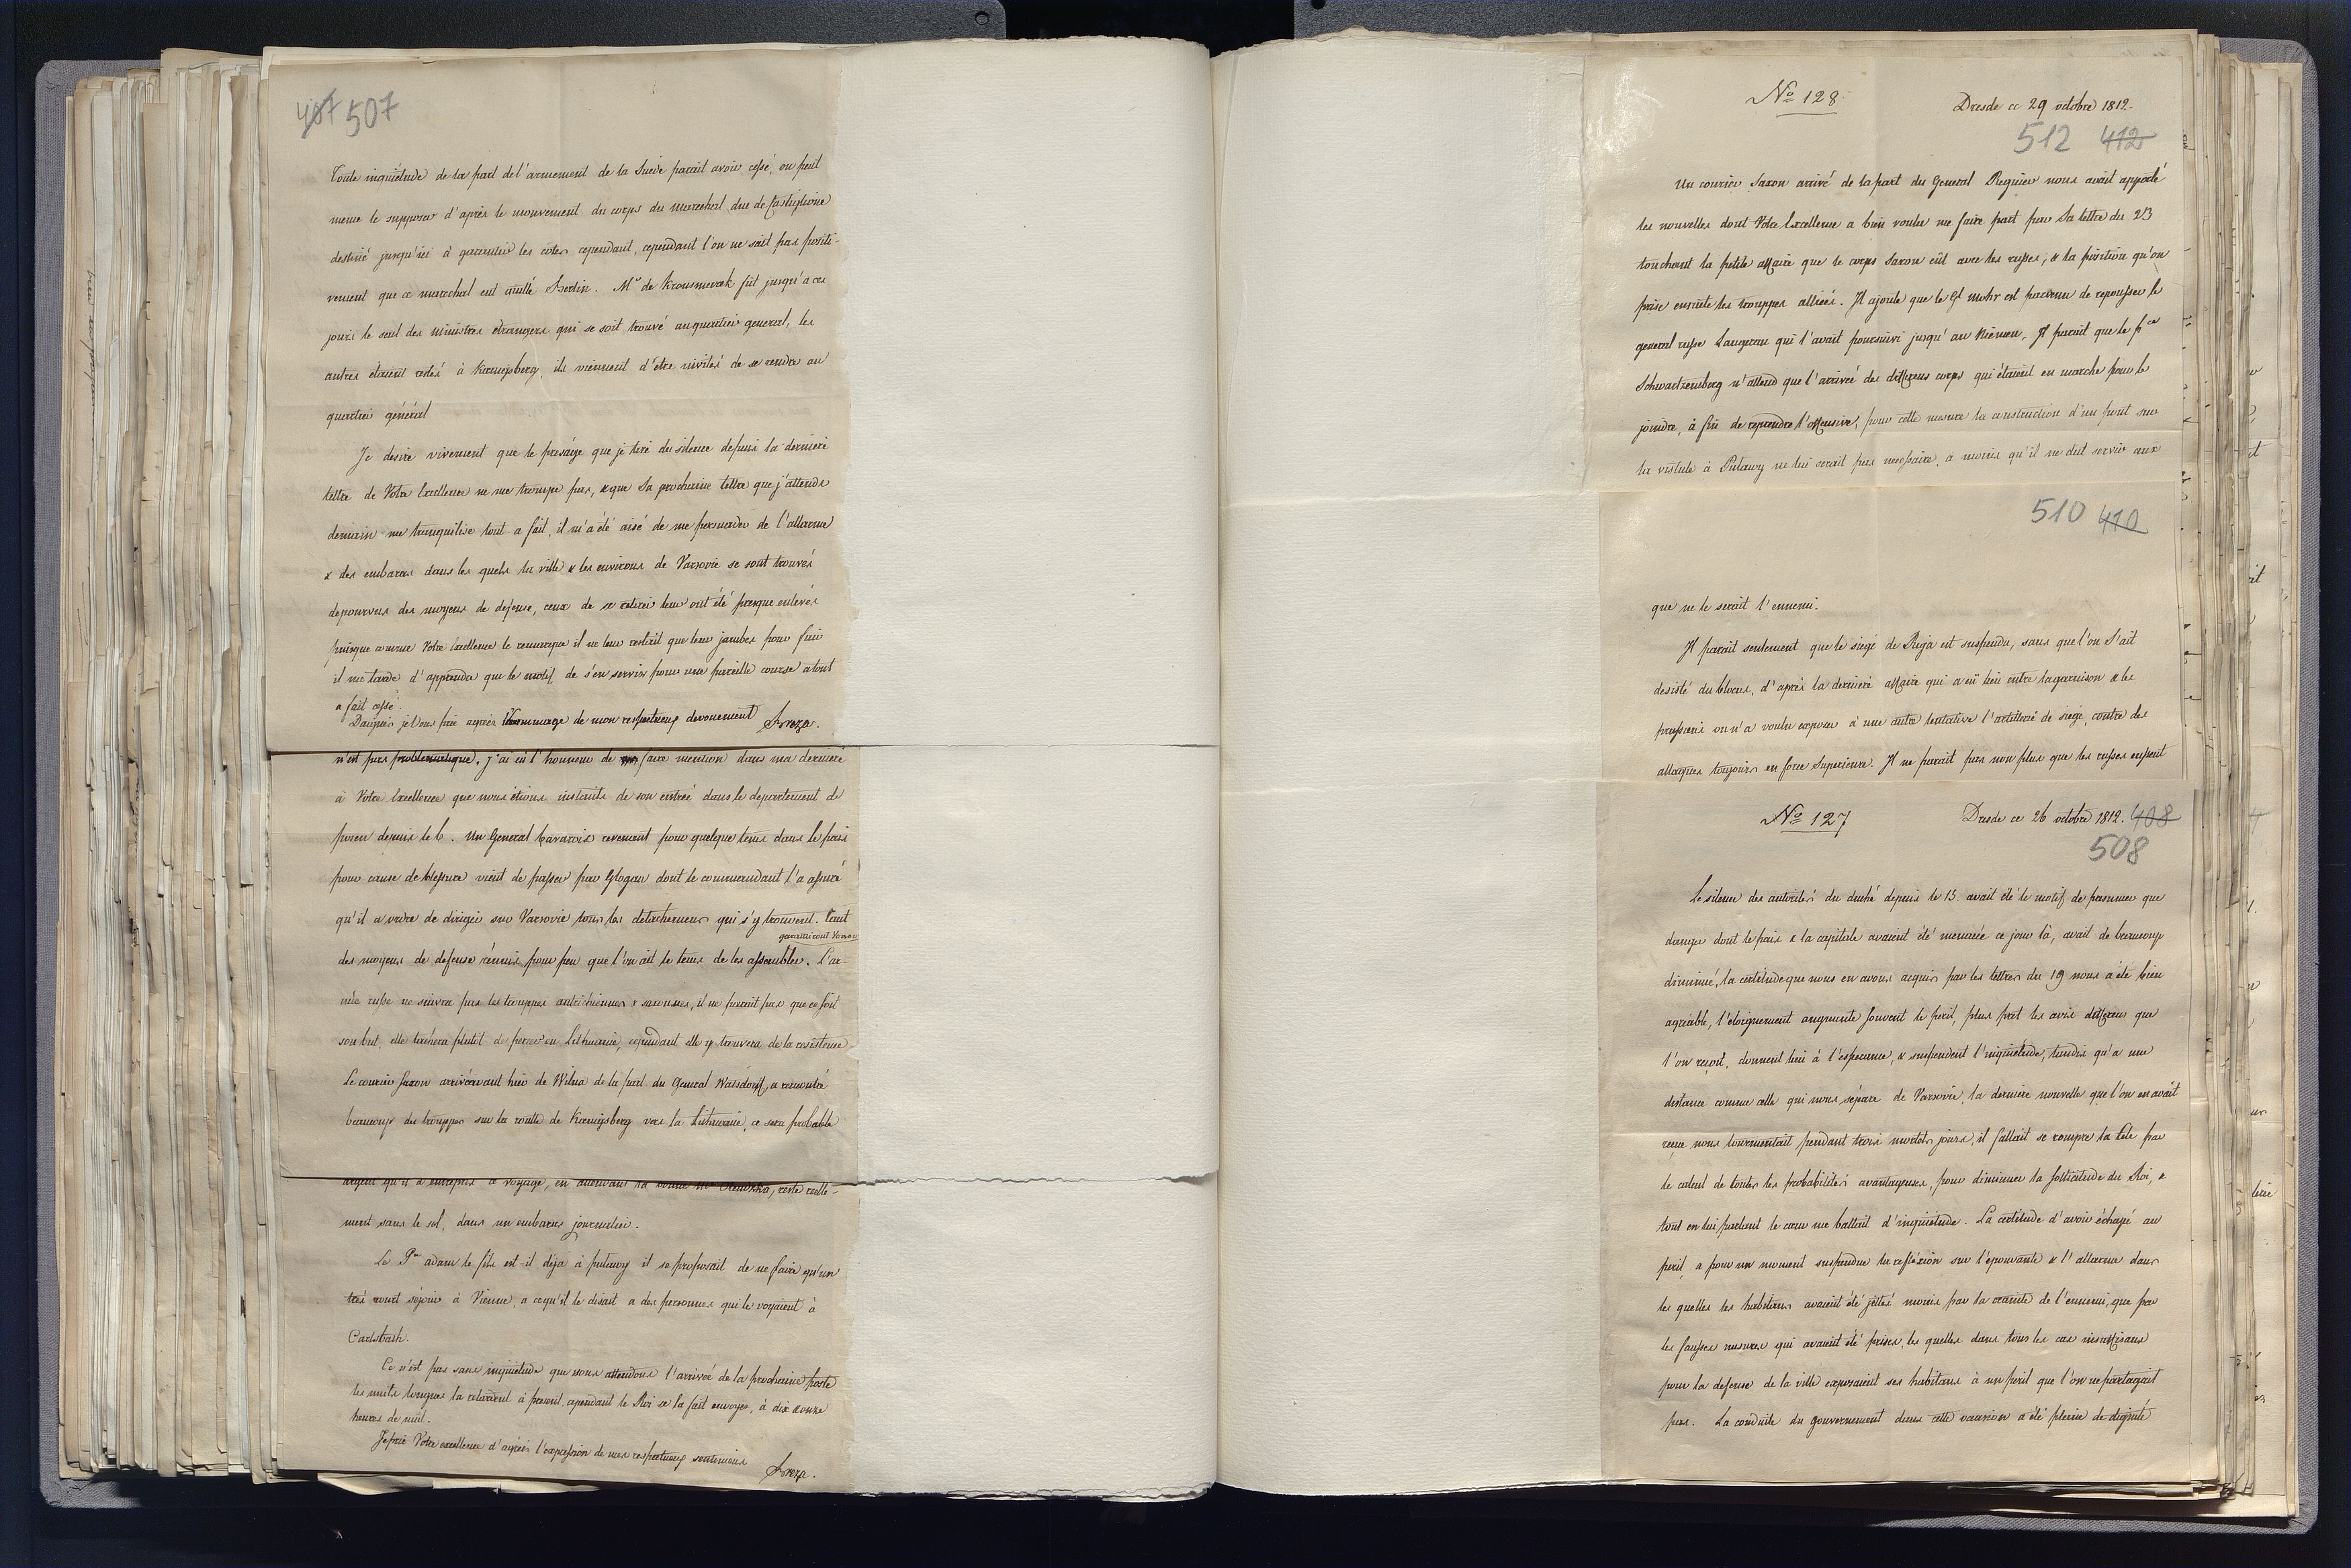 407 507
Toute inquiétude de la part de l'armement de la Suède parait avoir cessé, on peut
meme le supposer d'après le mouvement du corps du marechal duc de Castiglione
destiné jusqu'ici à garantir les cotes cependant, cependant l'on ne sait pas positi-
vement que ce marechal eut quitté Berlin. Mr de Krousmarck fut jusqu'à ces
jours le seul des ministres étrangers qui se soit trouvé au quartier general, les
autres étaient restés à Kœnigsberg, ils viennent d'être invités de se rendre au
quartier général
Je desire vivement que le présage que je tire du silence depuis la derniere
lettre de Votre Excellence ne me trompe pas, & que Sa prochaine lettre que j'attends
demain me tranquilise tout a fait, il m'a été aisé de me persuader de l'allarme
& des embaras dans les quels la ville & les environs de Varsovie se sont trouvés
depourvus des moyens de defense, ceux de se retirer leur ont été presque enlevés
puisque comme Votre Excellence le remarque il ne leur restait que leur jambes pour fuir
il me tarde d'apprendre que le motif de s'en servir pour une pareille course a tout
a fait cessé.
Daignés je Vous prie agréer l'hommage de mon respectueux devouement Breza.
n'est pas problematique, j'ai eû l'honneur de faire mention dans ma derniere
à Votre Excellence que nous étions instruits de son entrée dans le departement de
posen depuis le 6. Un General bavarois revenant pour quelque tems dans le païs
pour cause de blessure vient de passer par Glogau dont le commandant l'a assuré
qu'il a ordre de diriger sur Varsovie tous les detachemens qui s'y trouvent. tant
garantiront Varsov
des moyens de defense réunis pour peu que l'on ait le tems de les assembler. L'ar-
mée russe ne suivra pas les trouppes autrichiennes & saxonnes, il ne parait pas que ce soit
son but, elle tachera plutôt de percer en Lithuanie, cependant elle y trouvera de la resistence
Le courier saxon arrivé avant hier de Wilna de la part du General Watzdorff, a rencontré
beaucoup des trouppes sur la route de Kœnigsberg vers la Lithuanie, ce sera probable
argent qu'il a entrepris ce voyage, en attendant la bonne reste réelle-
ment sans le sol, dans un embaras journalier.
Le Pce adam le fils est-il deja à pulawy il se proposait de ne faire qu'un
très court séjour à Vienne, a ce qu'il le disait a des personnes qui le voyaient à
Carlsbath.
Ce n'est pas sans inquiétude que nous attendons l'arrivée de la prochaine poste
les nuits longues la retardent à present, cependant le Roi se la fait envoyer, à dix & onze
heures de nuit.
Je prie Votre excellence d'agréer l'expression de mes respectueux sentimens
Breza.
No 128.
Dresde ce 29 octobre 1812.
512 412
Un courier Saxon arrivé de la part du General Regnier nous avait apporté
les nouvelles dont Votre Excellence a bien voulu me faire part par Sa lettre du 23
touchant la petite affaire que le corps Saxon eût avec les russes, & la position qu'on
prise ensuite les trouppes alliées. Il ajoute que le Gl Mohr est parvenu de repousser le
general russe Langeron qui l'avait poursuivi jusqu'au Niemen. Il parait que le Pce
Schwartzemberg n'attend que l'arrivée des differens corps qui étaient en marche pour le
joindre, à fin de reprendre l'offensive, pour cette mesure la construction d'un pont sur
la vistule à Pulawy ne lui serait pas necessaire, à moins qu'il ne dut servir aux
510 410
que ne le serait l'ennemi.
Il parait seulement que le siege de Riga est suspendu, sans que l'on S'ait
desisté du blocus, d'après la derniere affaire qui a eû lieu entre la garnison & les
prussiens on n'a voulu exposer à une autre tentative l'artillerie de siege, contre des
attaques toujours en force Superieure. Il ne parait pas non plus que les russes eussent
No 127
Dresde ce 26 octobre 1812. 408
508
Le silence des autorités du duché depuis le 15. avait été le motif de presumer que
danger dont le païs & la capitale avaient été menacée ce jour là, avait de beaucoup
diminué, la certitude que nous en avons acquis par les lettres du 19 nous a été bien
agréable, l'éloignement augmente souvent le peril, plus prêt les avis differens que
l'on reçoit, donnent lieu à l'esperance, & suspendent l'inquiétude, tandis qu'a une
distance comme celle qui nous sépare de Varsovie, la derniere nouvelle que l'on en avait
reçue nous tourmentait pendant trois mortels jours, il fallait se rompre la tête par
le calcul de toutes les probabilités avantageuses, pour diminuer la sollicitude du Roi, &
tout en lui parlant le cœur me battait d'inquiétude. La certitude d'avoir échapé au
peril, a pour un moment suspendue la refléxion sur l'épouvante & l'allarme dans
les quelles les habitans avaient été jettés moins par la crainte de l'ennemi, que par
les fausses mesures qui avaient été prises, les quelles dans tous les cas insuffisans
pour la defense de la ville exposaient ses habitans à un peril que l'on ne partageait
pas. La conduite du gouvernement dans cette occasion a été pleine de dignité